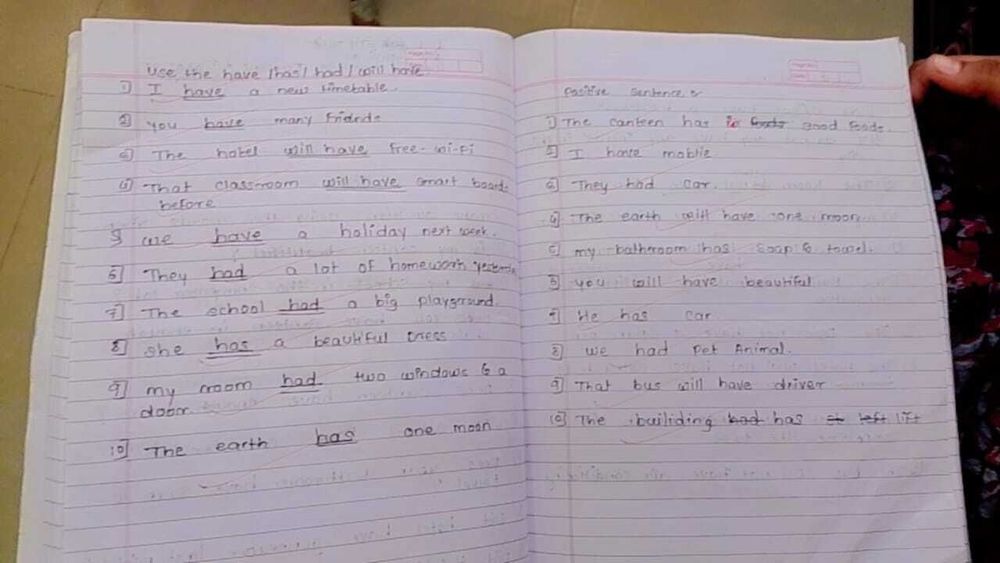 Use the have /has / had / will have
1) I have a new timetable.
2) you have many friends
The hotel will have free-wi-fi
4) That classroom will have smart board
before
we have a holiday next week.
6) They had a lot of homework yesterday
7) The school had a big playground.
8) she has a beautiful dress
9) my room had two windows & a
door.
10) The earth has one moon
Positive sentence
1) The canteen has foods good foods.
I have mobile
They had car.
The earth will have one moon
my bathroom has soap & towel.
you will have beautiful
He has car
8) we had Pet Animal.
9) That bus will have driver
10) The builiding had has left lift